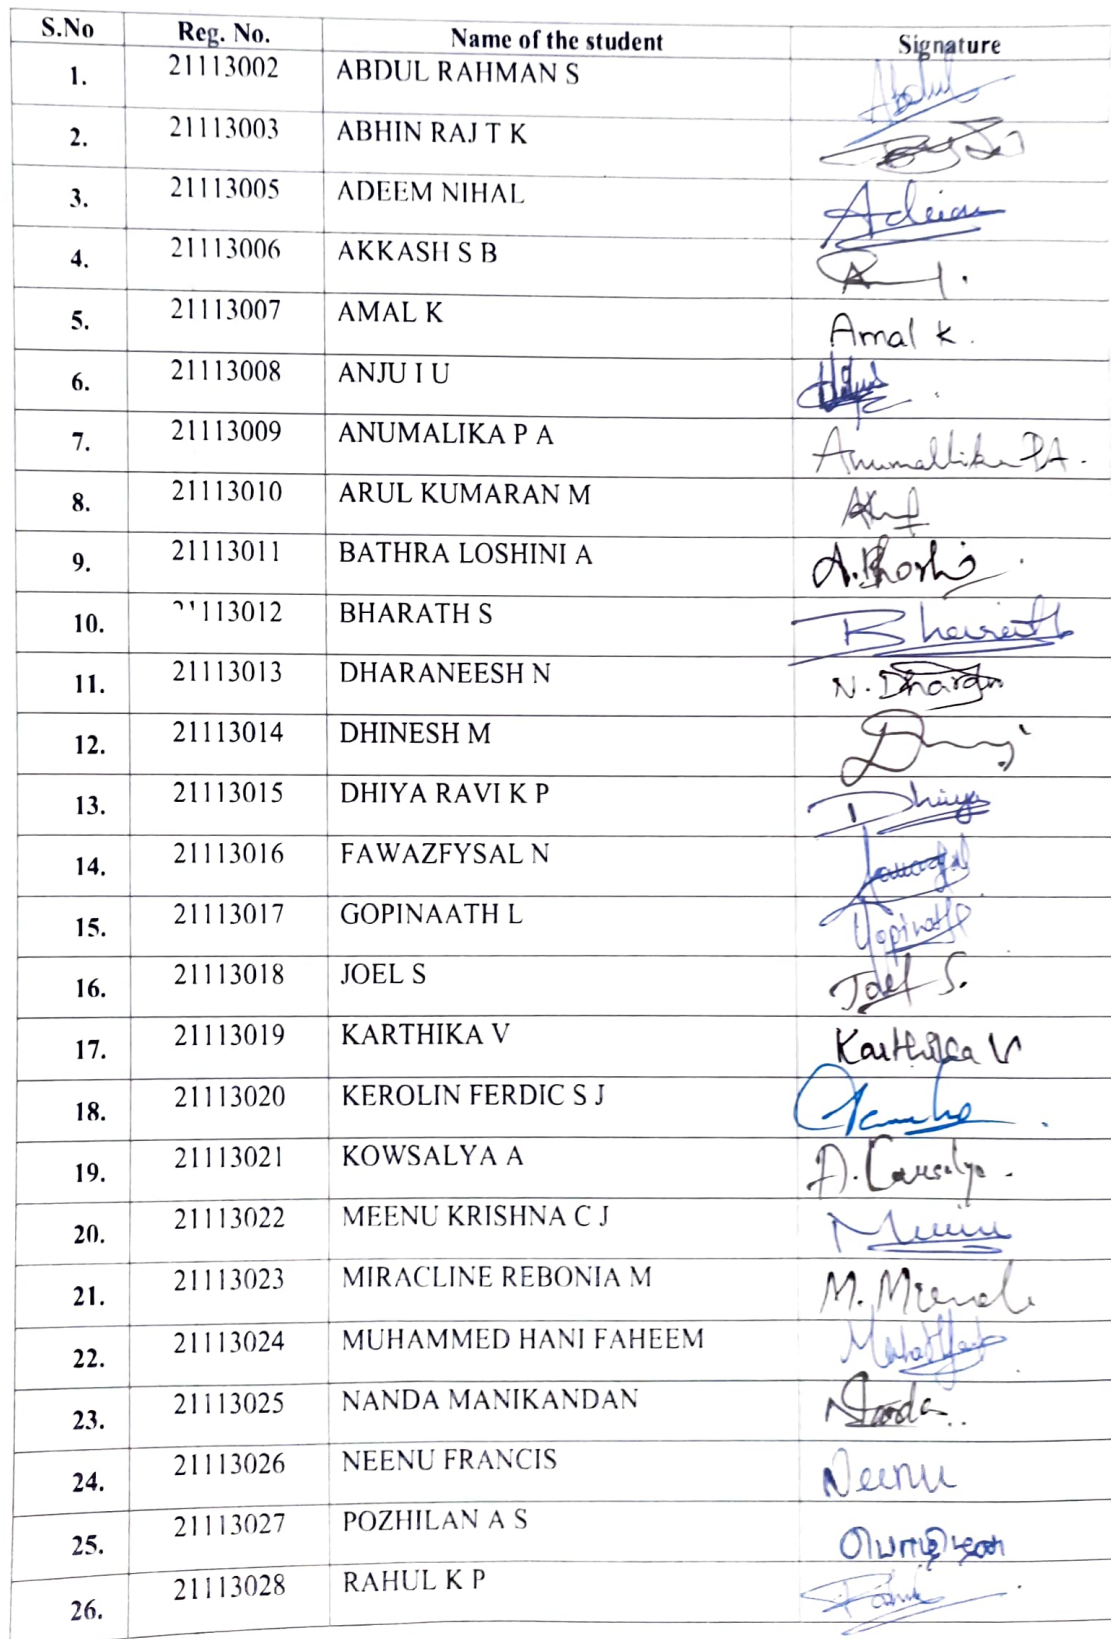 S.No Reg. No. Name of the student Signature
1. 21113002 ABDUL RAHMAN S Abdul
2. 21113003 ABHIN RAJ T K
3. 21113005 ADEEM NIHAL
4. 21113006 AKKASH S B
5. 21113007 AMAL K Amal K.
6. 21113008 ANJU I U
7. 21113009 ANUMALIKA P A Anumallika P.A.
8. 21113010 ARUL KUMARAN M
9. 21113011 BATHRA LOSHINI A
10. 21113012 BHARATH S Bharath
11. 21113013 DHARANEESH N N. Dharan
12. 21113014 DHINESH M
13. 21113015 DHIYA RAVI K P Dhiya
14. 21113016 FAWAZFYSAL N
15. 21113017 GOPINAATH L Gopinath
16. 21113018 JOEL S Joel S.
17. 21113019 KARTHIKA V Karthika V
18. 21113020 KEROLIN FERDIC S J
19. 21113021 KOWSALYA A A. Cowsalya.
20. 21113022 MEENU KRISHNA C J Meenu
21. 21113023 MIRACLINE REBONIA M
22. 21113024 MUHAMMED HANI FAHEEM
23. 21113025 NANDA MANIKANDAN Nanda
24. 21113026 NEENU FRANCIS Neenu
25. 21113027 POZHILAN A S பொழிலன்
26. 21113028 RAHUL K P Rahul